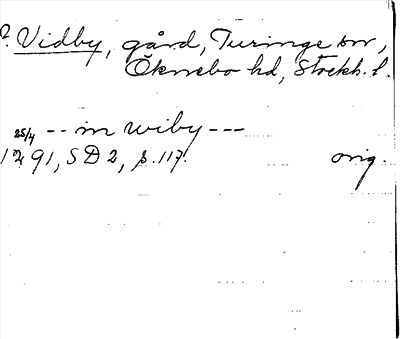 ? Vidby, gård, Turinge sn,
Öknebo hd, Stockh. l.
25/4 -- in wiby ---
1291, SD 2, s. 117. orig.